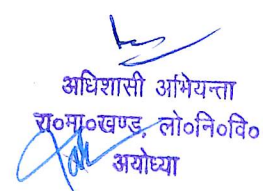 अधिशासी अभियन्ता
रा०मा०खण्ड, लो०नि०वि०
अयोध्या